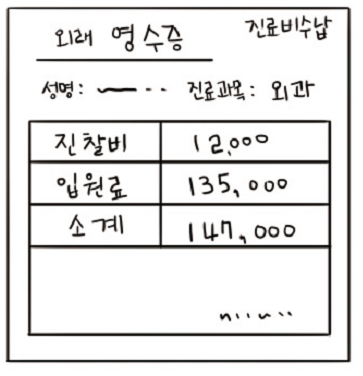 진료비수납
외래 영수증
성명: 진료과목: 외과
진찰비 12,000
입원료 135,000
소계 147,000